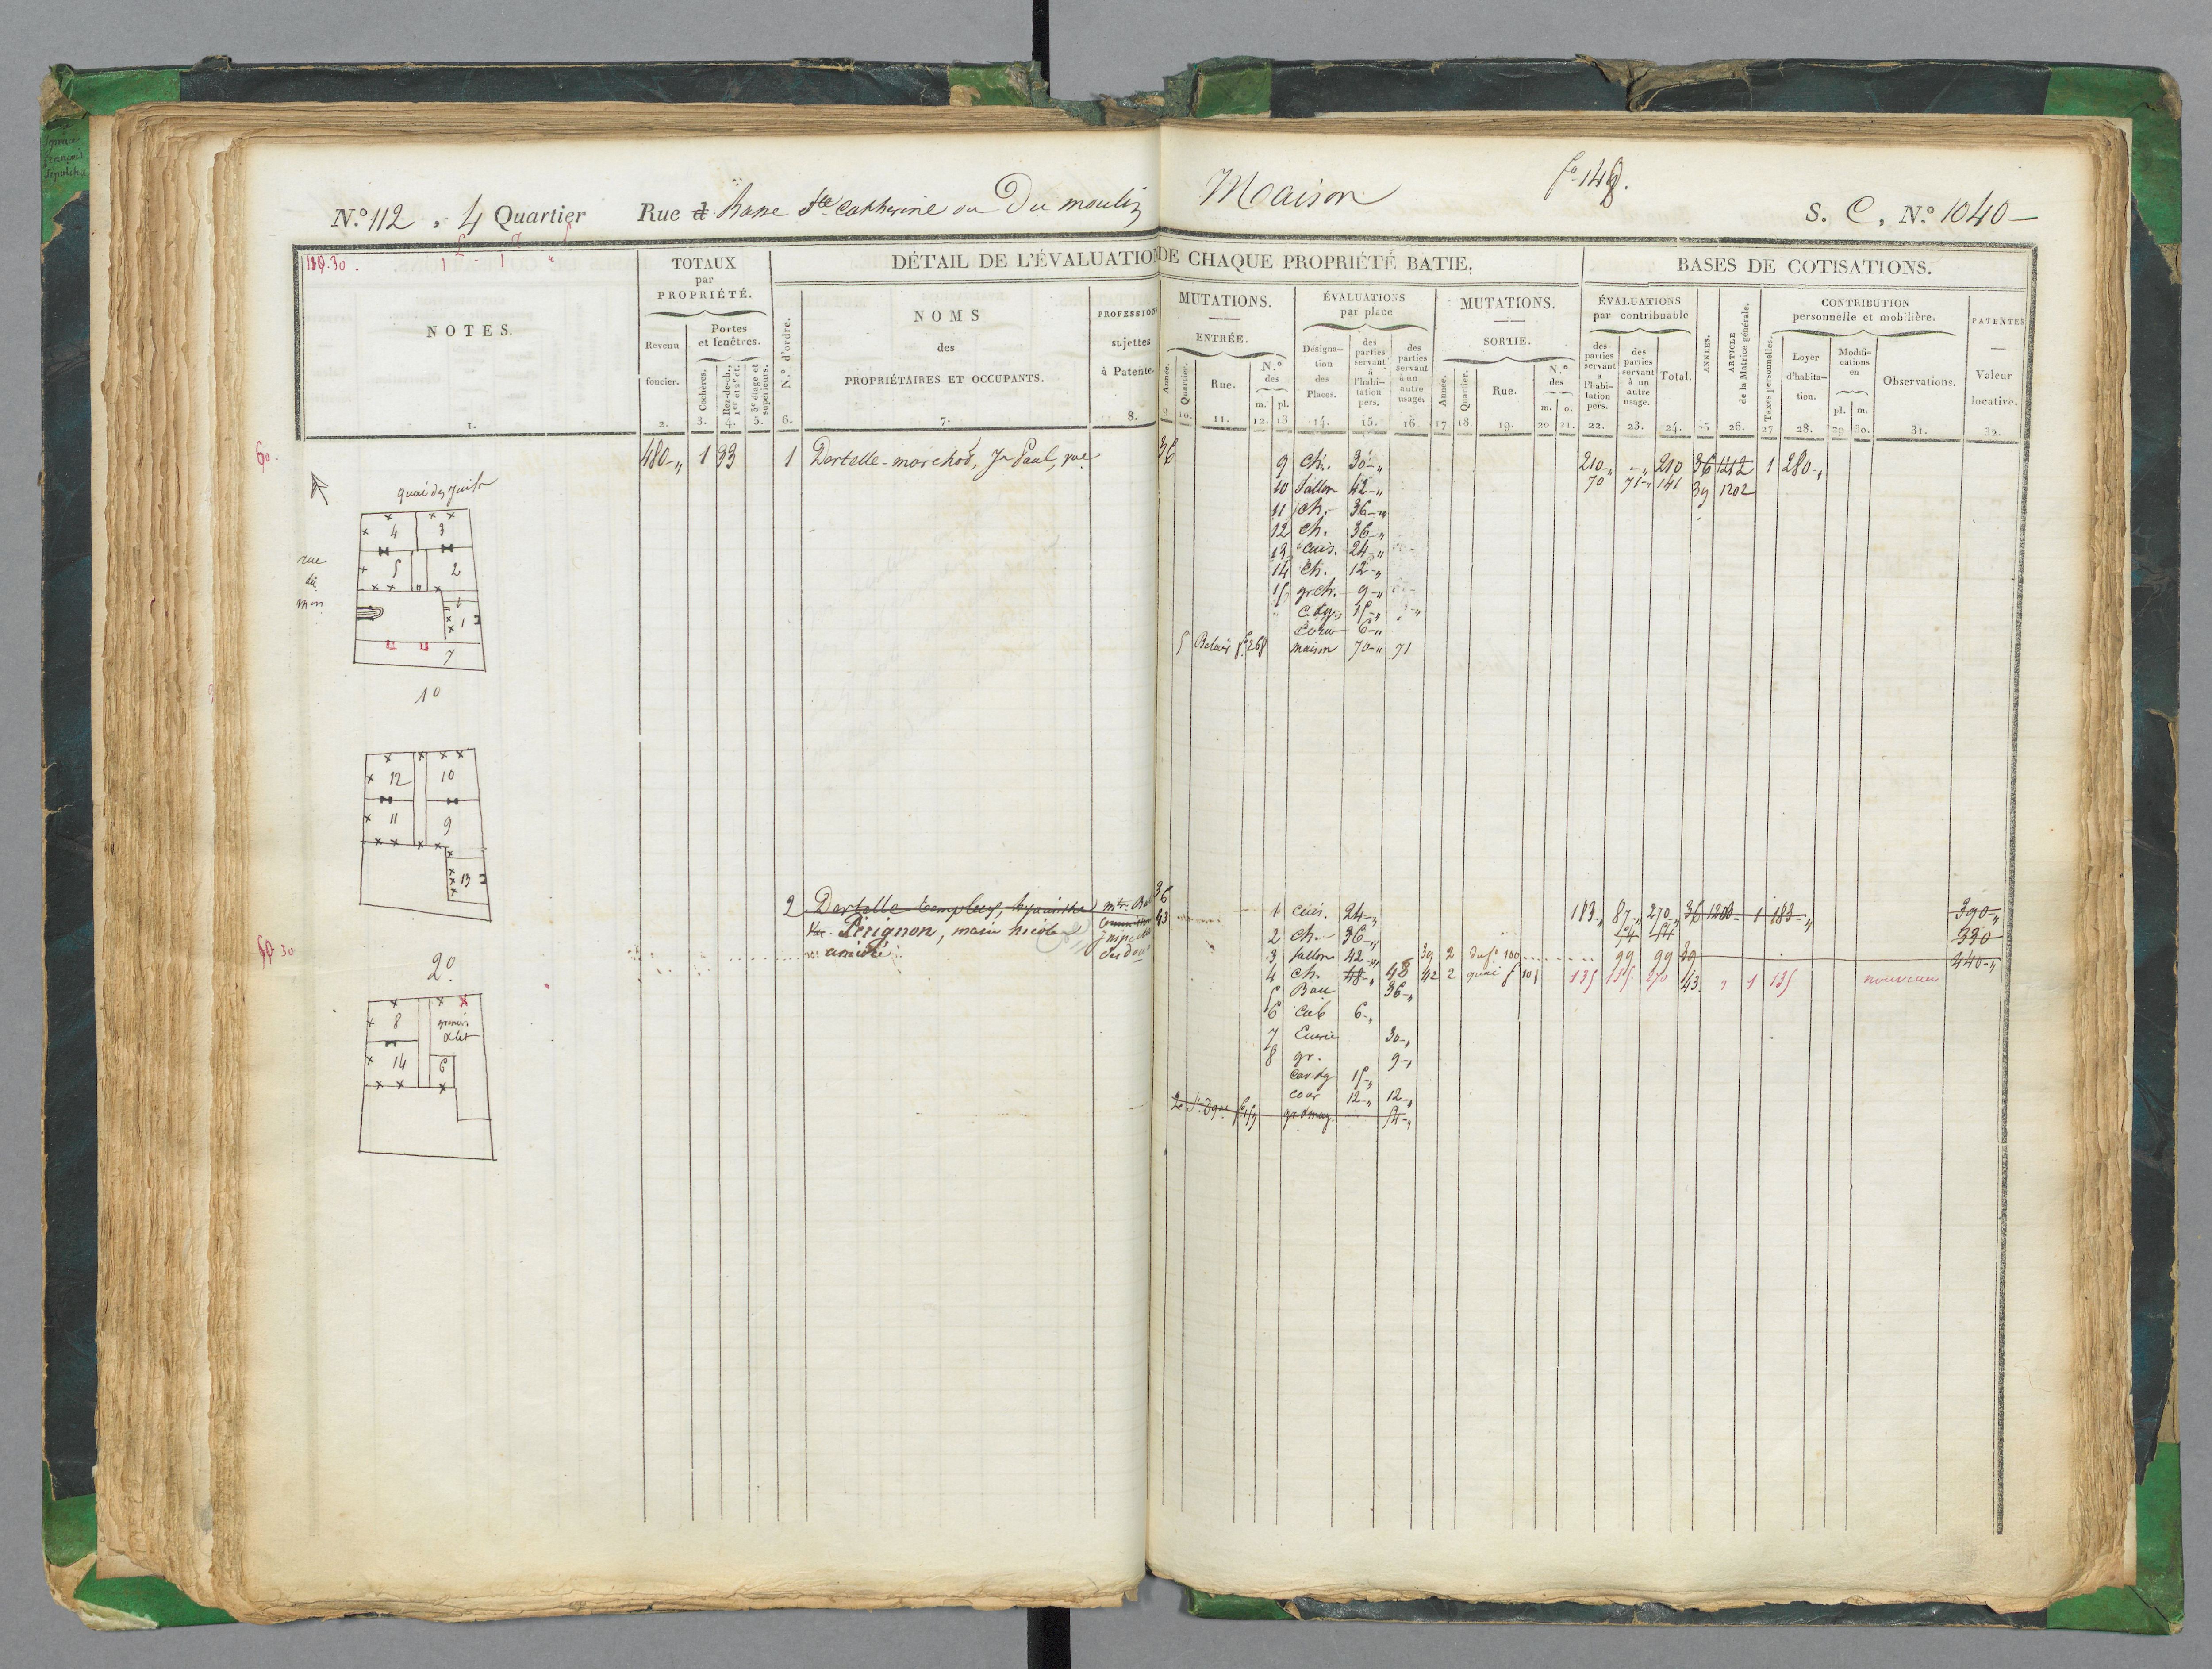 N.° 112, 4 Quartier Rue d Basse Ste Catherine ou Du moulin Maison fo 148. S. C, N.° 1040
30.
DÉTAIL DE L'ÉVALUATION DE CHAQUE PROPRIÉTÉ BATIE.
BASES DE COTISATIONS.
NOTES.
1.
TOTAUX
par
PROPRIÉTÉ.
Revenu
foncier.
2.
Portes
et fenêtres.
3. Cochères.
4. Rez-de-ch., 1er et 2e ét.
5. 3e étage et supérieurs.
6. N.° d'ordre.
NOMS
des
PROPRIÉTAIRES ET OCCUPANTS.
7.
PROFESSIONS
sujettes
à Patente.
8.
MUTATIONS.
ENTRÉE.
9 Année.
10. Quartier.
Rue.
11.
N.°
des
m. pl.
12. 13
ÉVALUATIONS
par place
Désigna-
tion
des
Places.
14.
des
parties
servant
à
l'habi-
tation
pers.
15.
des
parties
servant
à un
autre
usage.
16
MUTATIONS.
SORTIE.
17 Année.
18. Quartier.
Rue.
19.
N.°
des
m. o.
20 21.
ÉVALUATIONS
par contribuable
des
parties
servant
à
l'habi-
tation
pers.
22.
des
parties
servant
à un
autre
usage.
23.
Total.
24.
25 ANNÉES.
26. ARTICLE de la Matrice générale.
CONTRIBUTION
personnelle et mobilière.
27 Taxes personnelles.
Loyer
d'habita-
tion.
28.
Modifi-
cations
en
pl. m.
29 30.
Observations.
31.
PATENTES
Valeur
locative.
32.
60.
480-" 1 33 1 Dertelle-marchod, Jn Paul, 36 9 Ch. 30-" 210-" -" 210 36 1212 1 280-"
10 Sallon 42-" 70 71-" 141 39 1202
11 ch. 36-"
12 ch. 36-"
13 cuis. 24-"
14 ch. 12-"
15 gr ch. 9-"
15-"
6-"
5 fo 268 maison 70-" 71
quai des Juifs
4 3
rue
du
5 2
1
7
1o
12 10
11 9
13
2o
8
greniers
14 6
2 Dertelle hyacinthe 36 1 Cuis. 24-" 183-" 87-" 270-" 36 1200 1 183-" 390-"
Pérignon, marie nicole 43 2 Ch. 36-" 54 54 330
amédé 3 Sallon 42-" 39 2 100 99 99 39 440-"
4 Ch. 48-" 48 42 2 quai 135 135 270 43 1 135 nouveau
5 Bau 36-"
6 Cab 6-"
7 Ecurie 30-"
8 gr. 9-"
15-"
cour 12-" 12-"
54-"